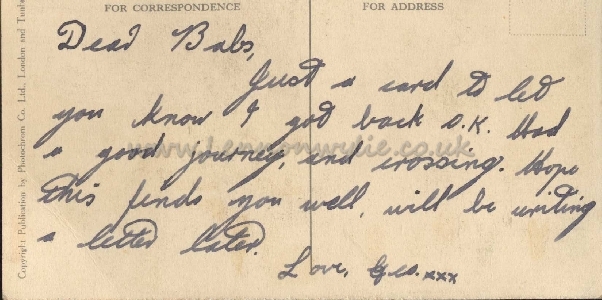 FOR CORRESPONDENCE
FOR ADDRESS
Dead Babs,
Just a card to let
you know I got back O.K. Had
a good journey, and crossing. Hope
this finds you well, will be writing
a letter later.
Love, Geo. xxx
www.lennonwylie.co.uk
Copyright Publication by Photochrom Co. Ltd., London and Tunb